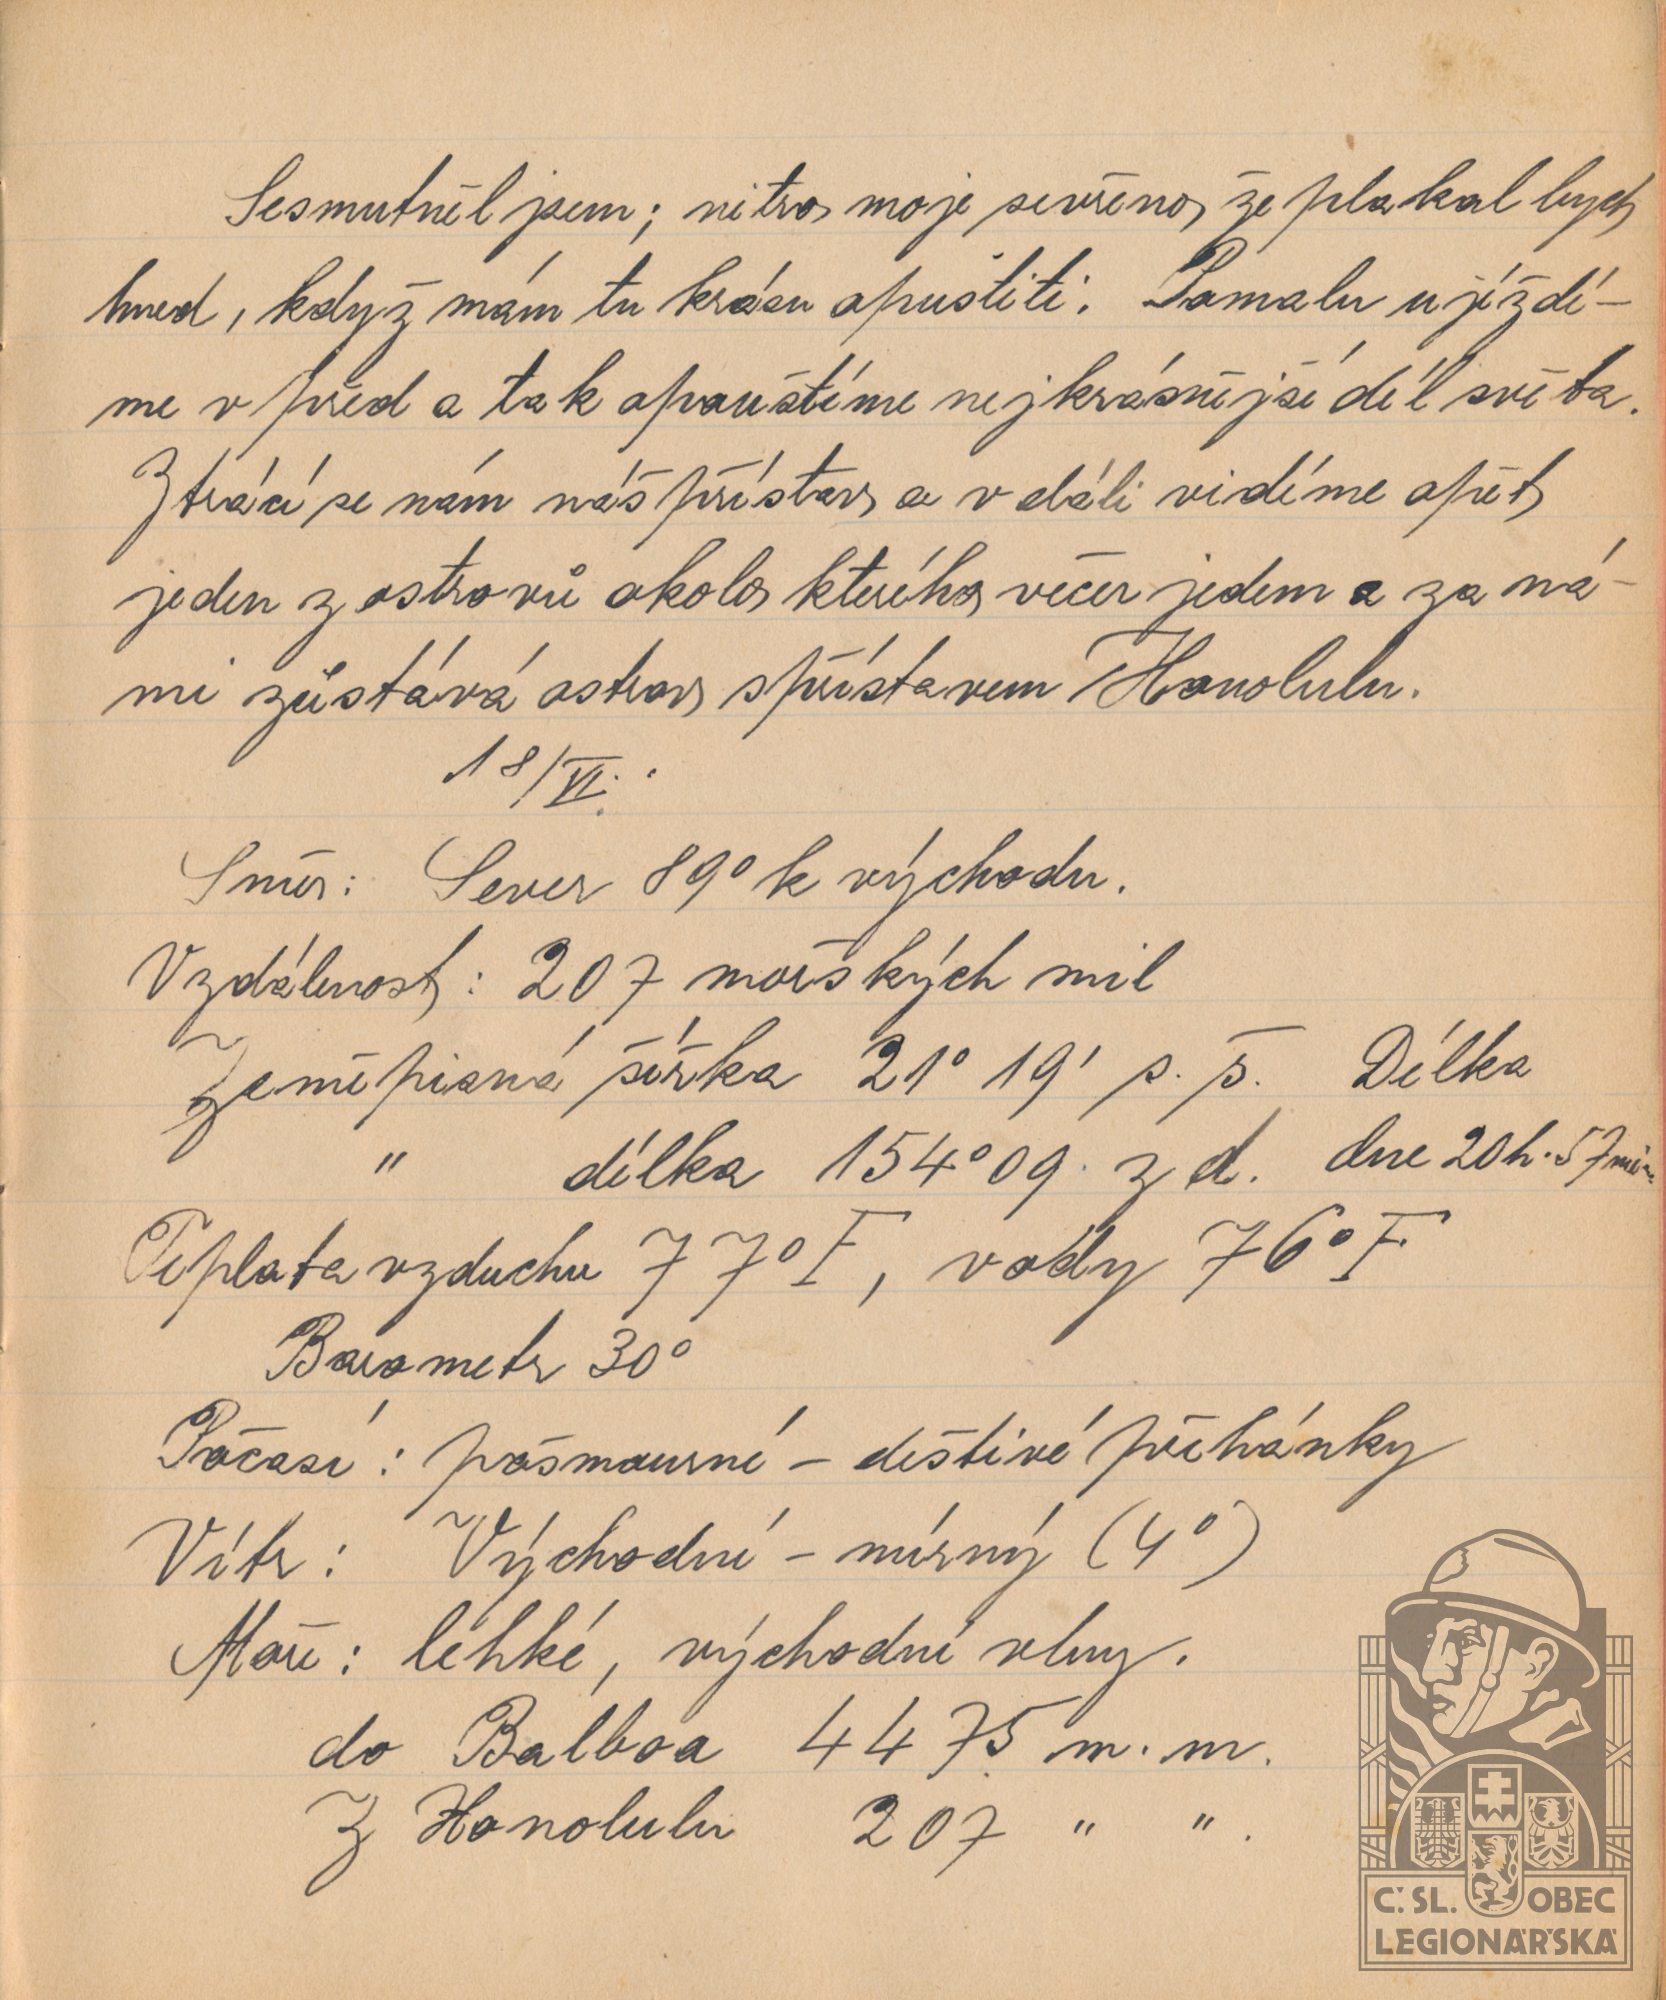 Sesmutněl jsem; nitro moje sevřeno, že plakal bych
hned, když mám tu krásu opustiti. Pomalu ujíždí-
me v před a tak opouštíme nejkrásnější díl světa.
Ztrácí se nám náš přístav a v dáli vidíme opět
jeden z ostrovů okolo kterého večer jedem a za ná-
mi zůstává ostrov s přístavem Honolulu.
18/VI.
Směr: Sever 89° k východu.
Vzdálenost: 207 mořských mil
Zeměpisná šířka 21° 19' s. š. Délka
" délka 154° 09 z d. dne 20 h. 57 min.
Teplota vzduchu 77° F, vody 76° F
Barometr 30°
Počasí: pošmourné - deštivé přeháňky
Vítr: Východní - mírný (4°)
Moře: lehké, východní vlny.
do Balboa 4475 m. m.
Z Honolulu 207 " ".
Č. SL. OBEC
LEGIONÁŘSKÁ